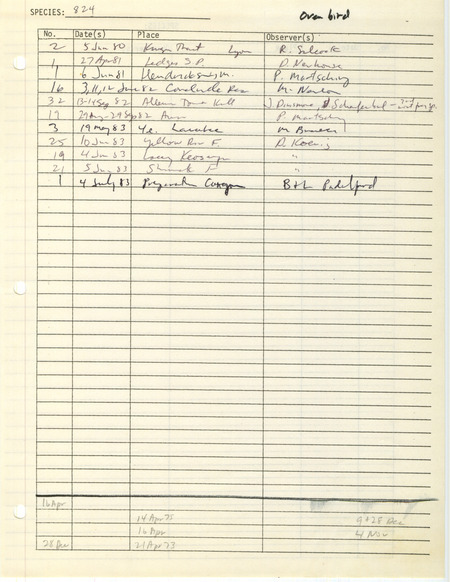 SPECIES: 824 Ovenbird
No. Date(s) Place Observer(s)
2 5 Jun 80 Lyon R. Silcock
1 27 Apr 81 Ledges S.P. D. Newhouse
1 6 Jun 81 P. Martsching
16 3, 11, 12 June 82 M. Newlon
32 13-14 Sep 82 Alleman Tower Kill J. Dinsmore,
19 29 Sep 82 Ames P. Martsching
3 19 May 83
25 10 Jun 83 Yellow River F. D. Koenig
19 4 Jun 83 Lacey Keosauqua "
21 5 Jun 83 Shimek F "
1 4 July 83 Preparation Canyon B+L Padelford
16 Apr
14 Apr 75 9+28 Dec
16 Apr 4 Nov
28 Dec 21 Apr 73